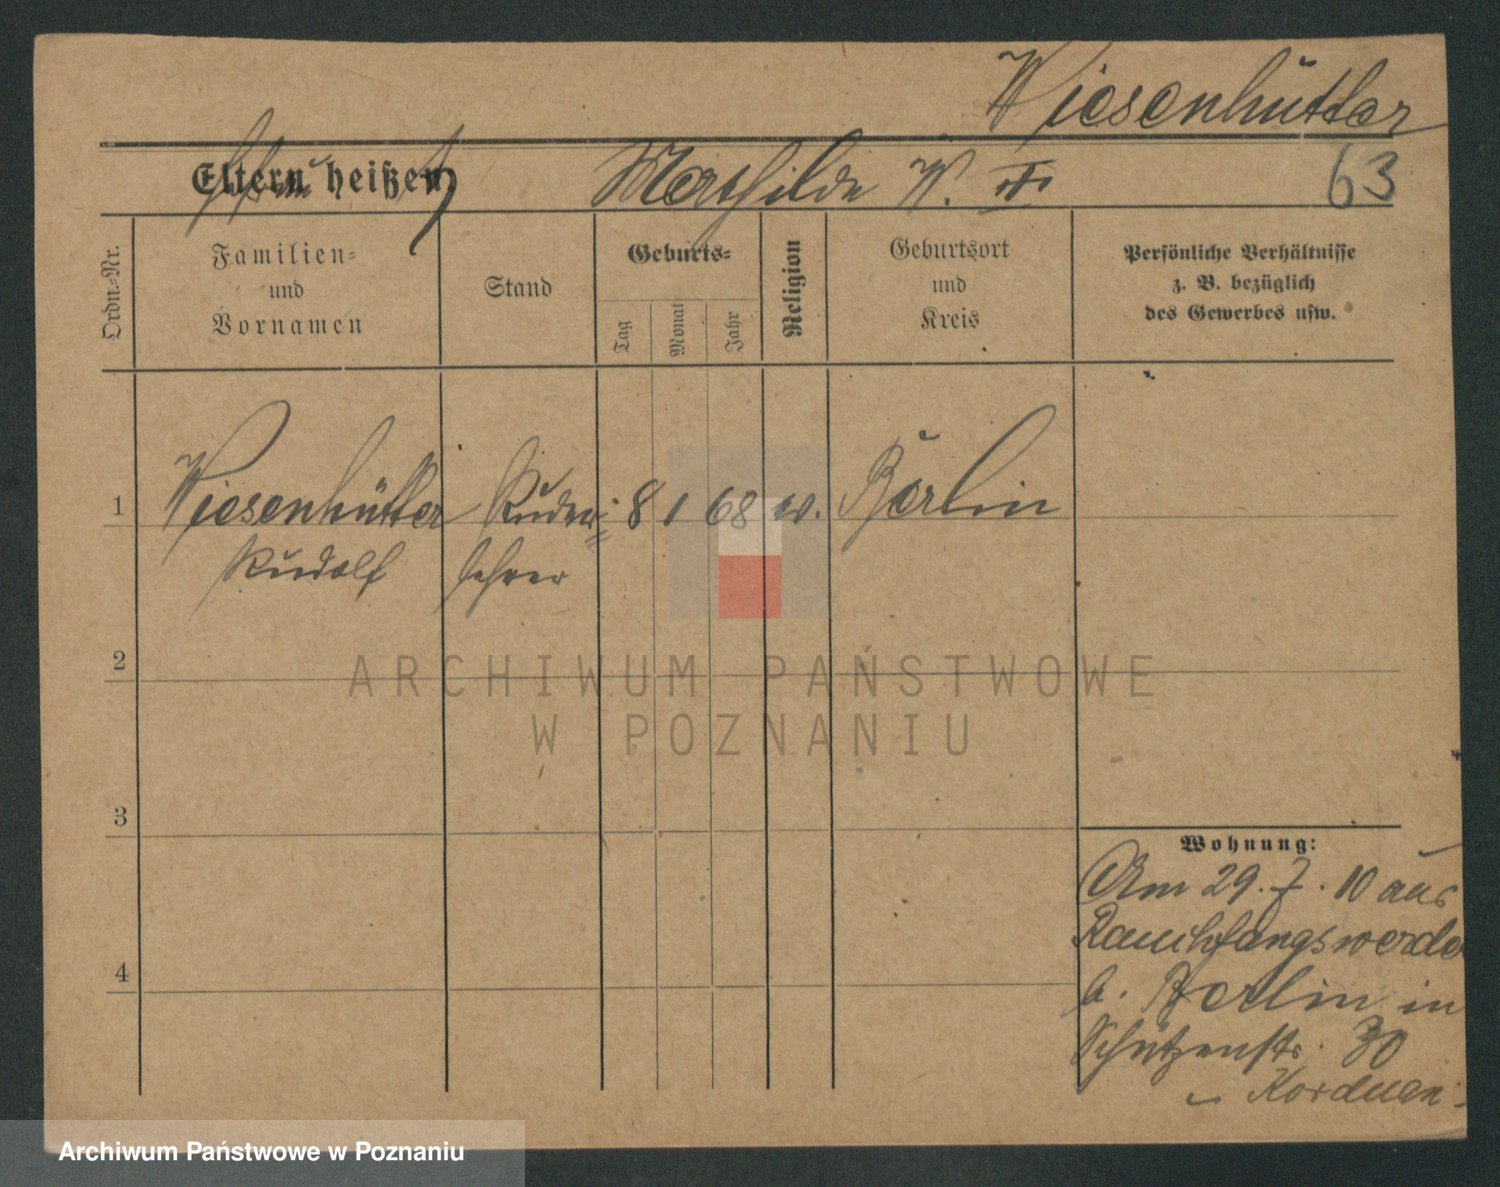 Wiesenhütter
Eltern heißen
Mathilde W. III
63
Ordn.-Nr.
Familien-
und
Vornamen
Stand
Geburts-
Tag
Monat
Jahr
Religion
Geburtsort
und
Kreis
Persönliche Verhältnisse
z. B. bezüglich
des Gewerbes usw.
1
Wiesenhütter
Ruder-
8
1
68
ev.
Berlin
Rudolf
lehrer
2
ARCHIWUM PAŃSTWOWE
W POZNANIU
3
Wohnung:
Am 29.7.10 aus
Rauchfangswerder
b. Berlin in
Schützenstr. 30
4
Archiwum Państwowe w Poznaniu